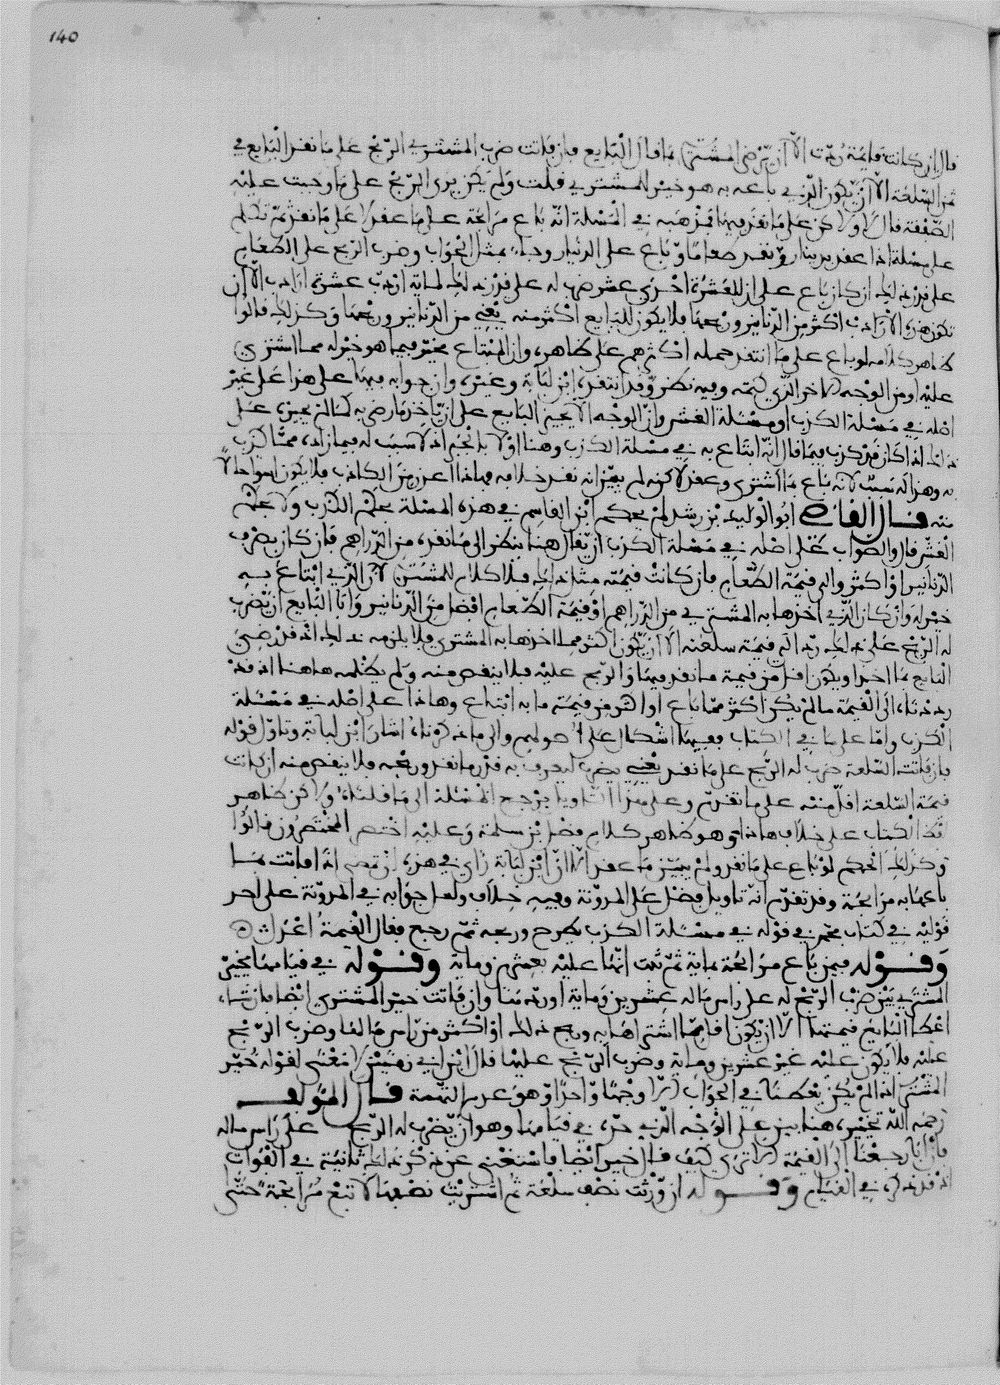 140
قال إن كانت قايمة ردت الا أن يرضى المشتري بما قال البايع فإن فاتت ضرب المشتري الربح على ما نقد البايع في
ثمن السلعة الا أن يكون الذي باعه به هو خير للمشتري قلت ولم يكن يرى الربح على ما وجبت عليه
الصفقة قال لا ولاكن على ما نقد فيها مذهبه في المسلة انه باع مرابحة على ما عقد لا على ما نقد ثم تكلم
على مسلة اذا عقد بدينار ونقد طعاما وباع على الدنيار وجاء بمثل الجواب وضرب الربح على الطعام
على قدر ذلك ان كان باع على ان للعشرة احدى عشر ضرب له على قدر ذلك لماية اردب عشرة ارادب الا أن
تكون هذه الارادب اكثر من الدنانير وربحها فلا يكون للبايع اكثر منه يعني من الدنانير وربحها وكذلك قالوا
ظاهر كلامه لو باع على ما انتقد حمله اكثرهم على ظاهره وان المبتاع مخير فيما هو خير له مما اشترى
عليه او من الوجه الاخر الذي كتمه وفيه نظر وقد انتقده ابن لبابة وغيره وان جوابه فيها على هذا على غير
اصله في مسلة الكذب او مسلة الغش وان الوجه الا يجبر البايع على ان ياخذ ما رضي به كما لم يجبره على
ذلك اذا كان قد كذب فيما قال انه ابتاع به في مسلة الكذب وهنا اولا يجبر اذ لا سبب له فيما زاد مما كذب
به وهذا له سبب لانه باع بما اشترى وعقد لاكنه لم يبين انه نقد خلافه فهاذا اعذر من الكاذب فلا يكون اسوا حالا
منه قال القاضي ابو الوليد بن رشد لم يحكم ابن القاسم في هذه المسلة بحكم الكذب ولا بحكم
الغش قال والصواب على اصله في مسلة الكذب ان يقال هنا ينظر الى ما نقد من الدراهم فان كان يضرب
الدنانير او اكثر والى قيمة الطعام فان كانت قيمته مثل ذلك فلا كلام للمشتري لان الذي ابتاع به
خير له وان كان الذي اخذها به المشتري من الدراهم او قيمة الطعام افضل من الدنانير وابا البايع ان يضرب
له الربح على ذلك رد الى قيمة سلعته الا ان يكون اكثر مما اخذها به المشتري فلا يلزمه ذلك اذ قد رضي
البايع بما اخذ او يكون اقل من قيمة ما نقد فيها والربح عليه فلا ينقص منه ولم يظلمه هاهنا اذ قد
رددناه الى القيمة ما لم يكن اكثر مما باع او اقل من قيمة ما به ابتاع وهاذا على اصله في مسلة
الكذب واما على ما في الكتاب ففيها اشكال على اصولهم والى ما ذكرناه اشار ابن لبابة وتاول قوله
فان فاتت السلعة ضرب له الربح على ما نقد يعني يضرب ليعرف به قدر ما نقد وربحه فلا ينقص منه ان كانت
قيمة السلعة اقل منه على ما تقدم وعلى هذا التاويل يرجع المسلة الى ما قلناه ولاكن ظاهر
هذا الكتاب على خلاف هاذا وهو ظاهر كلام فضل بن سلمة وعليه اختصر المختصرون قالوا
وكذلك الحكم لو باع على ما نقد ولم يبين ما عقد الا ان ابن لبابة زاي في هذه ان قصر اذا فاتت مما
باعها به مرابحة وقد تقدم انه تاويل فضل على المدونة وفيه خلاف ولعل جوابه في المدونة على احد
قوليه في كتاب محمد في قوله في مسلة الكذب يطرح وربحه ثم رجع فقال القيمة اعدل
وقوله فيمن باع مرابحة بماية ثم ثبت انها عليه بعشرين وماية وقوله في قيامها يخير
المشتري بين ضرب الربح له على راس ماله عشرين وماية او ردها وان فاتت خير المشتري ايضا فان شاء
اعطا البايع قيمتها الا ان يكون اقل مما اشتراها به وربح ذلك او اكثر من راس مالها وضرب الربح
عليه فلا يكون عليه غير عشرين وماية وضرب الربح عليها قال ابن ابي زمنين لا معنى لقوله خير
المشتري اذ لم يكن يعطينا في الجواب الا وجها واحدا وهو غرم القيمة قال المولف
رحمه الله تخييره هنا بين على الوجه الذي حده في قيامها وهو ان يضرب له الربح على راس ماله
فان ابا رجعنا الى القيمة الا ترى كيف قال خير ايضا فاستغنى عن ذكر ذلك ثانية في الفوات
اذ قد ذكره في القيام وقوله ان ورثت نصف سلعة ثم اشتريت نصفها لا تبع مرابحة حتى